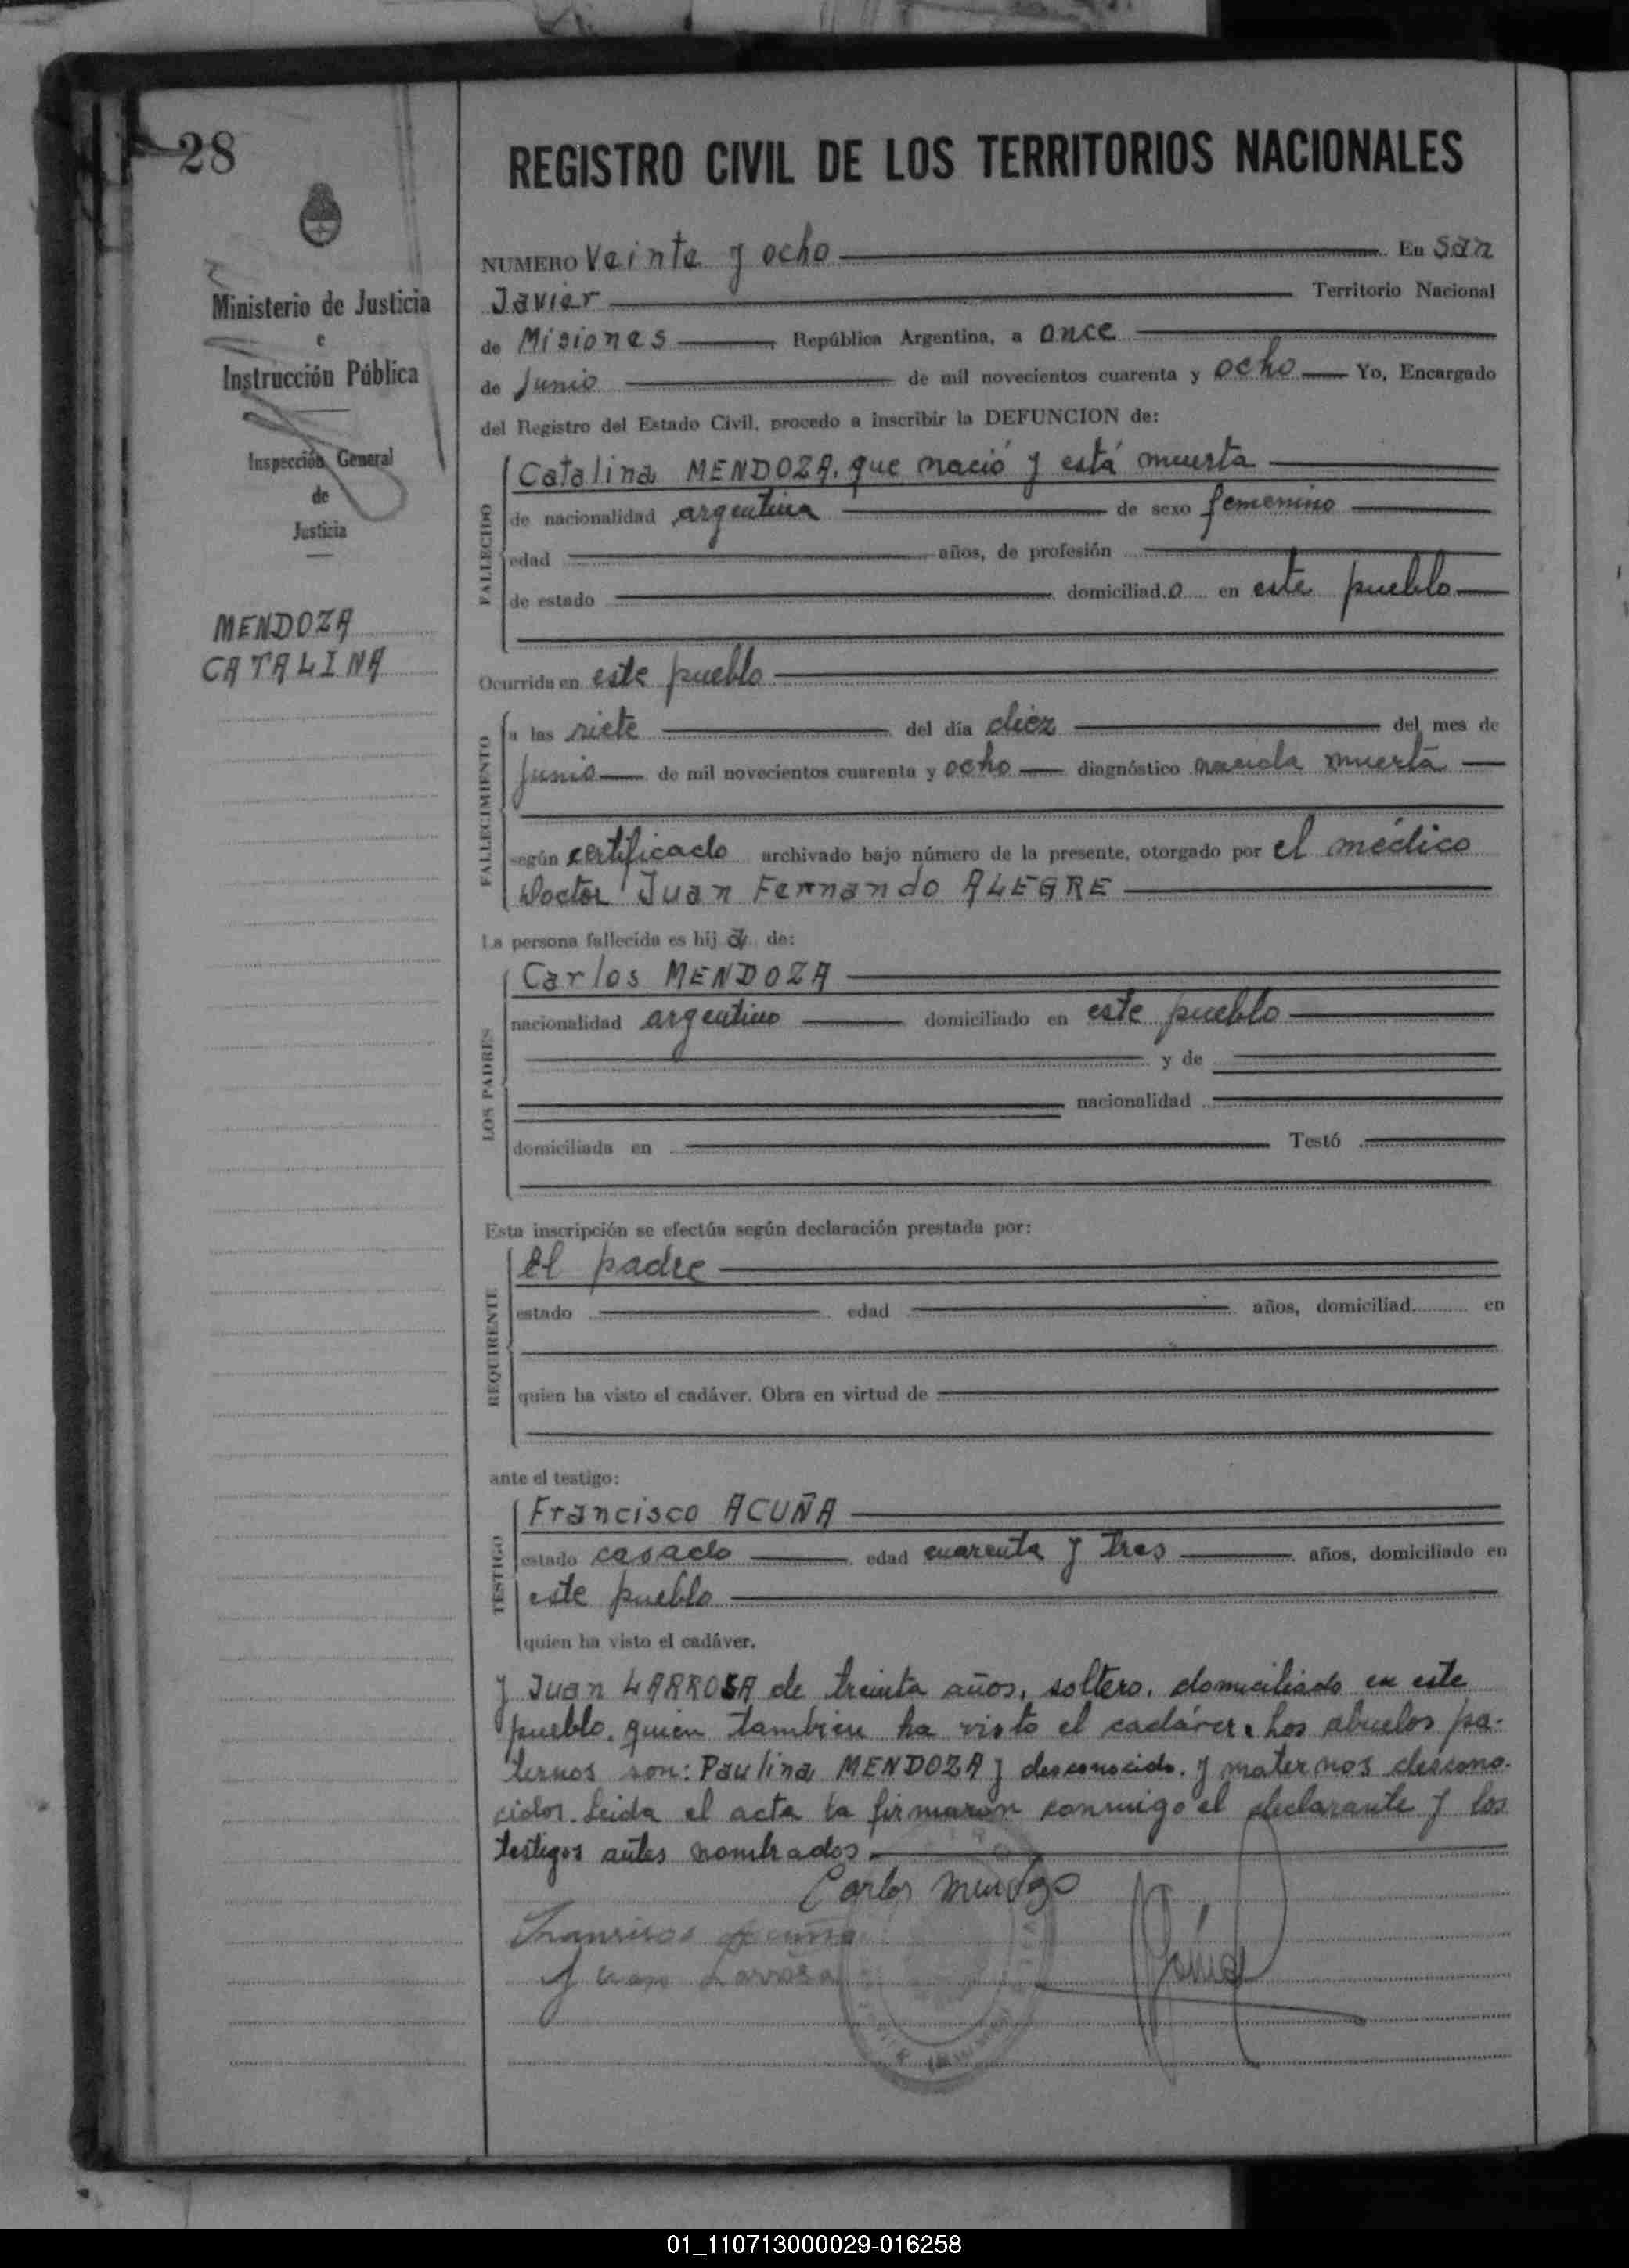 28
REGISTRO CIVIL DE LOS TERRITORIOS NACIONALES
Ministerio de Justicia
e
Instrucción Pública
Inspección General
de
Justicia
MENDOZA
CATALINA
NUMERO Veinte y ocho En San
Javier Territorio Nacional
de Misiones República Argentina, a once
de Junio de mil novecientos cuarenta y ocho Yo, Encargado
del Registro del Estado Civil, procedo a inscribir la DEFUNCION de:
FALLECIDO
Catalina MENDOZA, que nació y está muerta
de nacionalidad argentina de sexo femenino
edad años, de profesión
de estado domiciliad.a en este pueblo
Ocurrida en este pueblo
FALLECIMIENTO
a las siete del día diez del mes de
junio de mil novecientos cuarenta y ocho diagnóstico nacida muerta
según certificado archivado bajo número de la presente, otorgado por el médico
Doctor Juan Fernando ALEGRE
La persona fallecida es hij a de:
LOS PADRES
Carlos MENDOZA
nacionalidad argentino domiciliado en este pueblo
y de
nacionalidad
domiciliada en Testó
Esta inscripción se efectúa según declaración prestada por:
REQUIRENTE
el padre
estado edad años, domiciliad.......... en
quien ha visto el cadáver. Obra en virtud de
ante el testigo:
TESTIGO
Francisco ACUÑA
estado casado edad cuarenta y tres años, domiciliado en
este pueblo
quien ha visto el cadáver.
y Juan LARROSA de treinta años, soltero, domiciliado en este
pueblo, quien tambien ha visto el cadáver. Los abuelos pa-
ternos son: Paulina MENDOZA y desconocido. y maternos descono-
cidos. Leida el acta la firmaron conmigo el declarante y los
testigos antes nombrados.
Carlos Mendoza
Francisco Acuña
Juan Larrosa
01_110713000029-016258